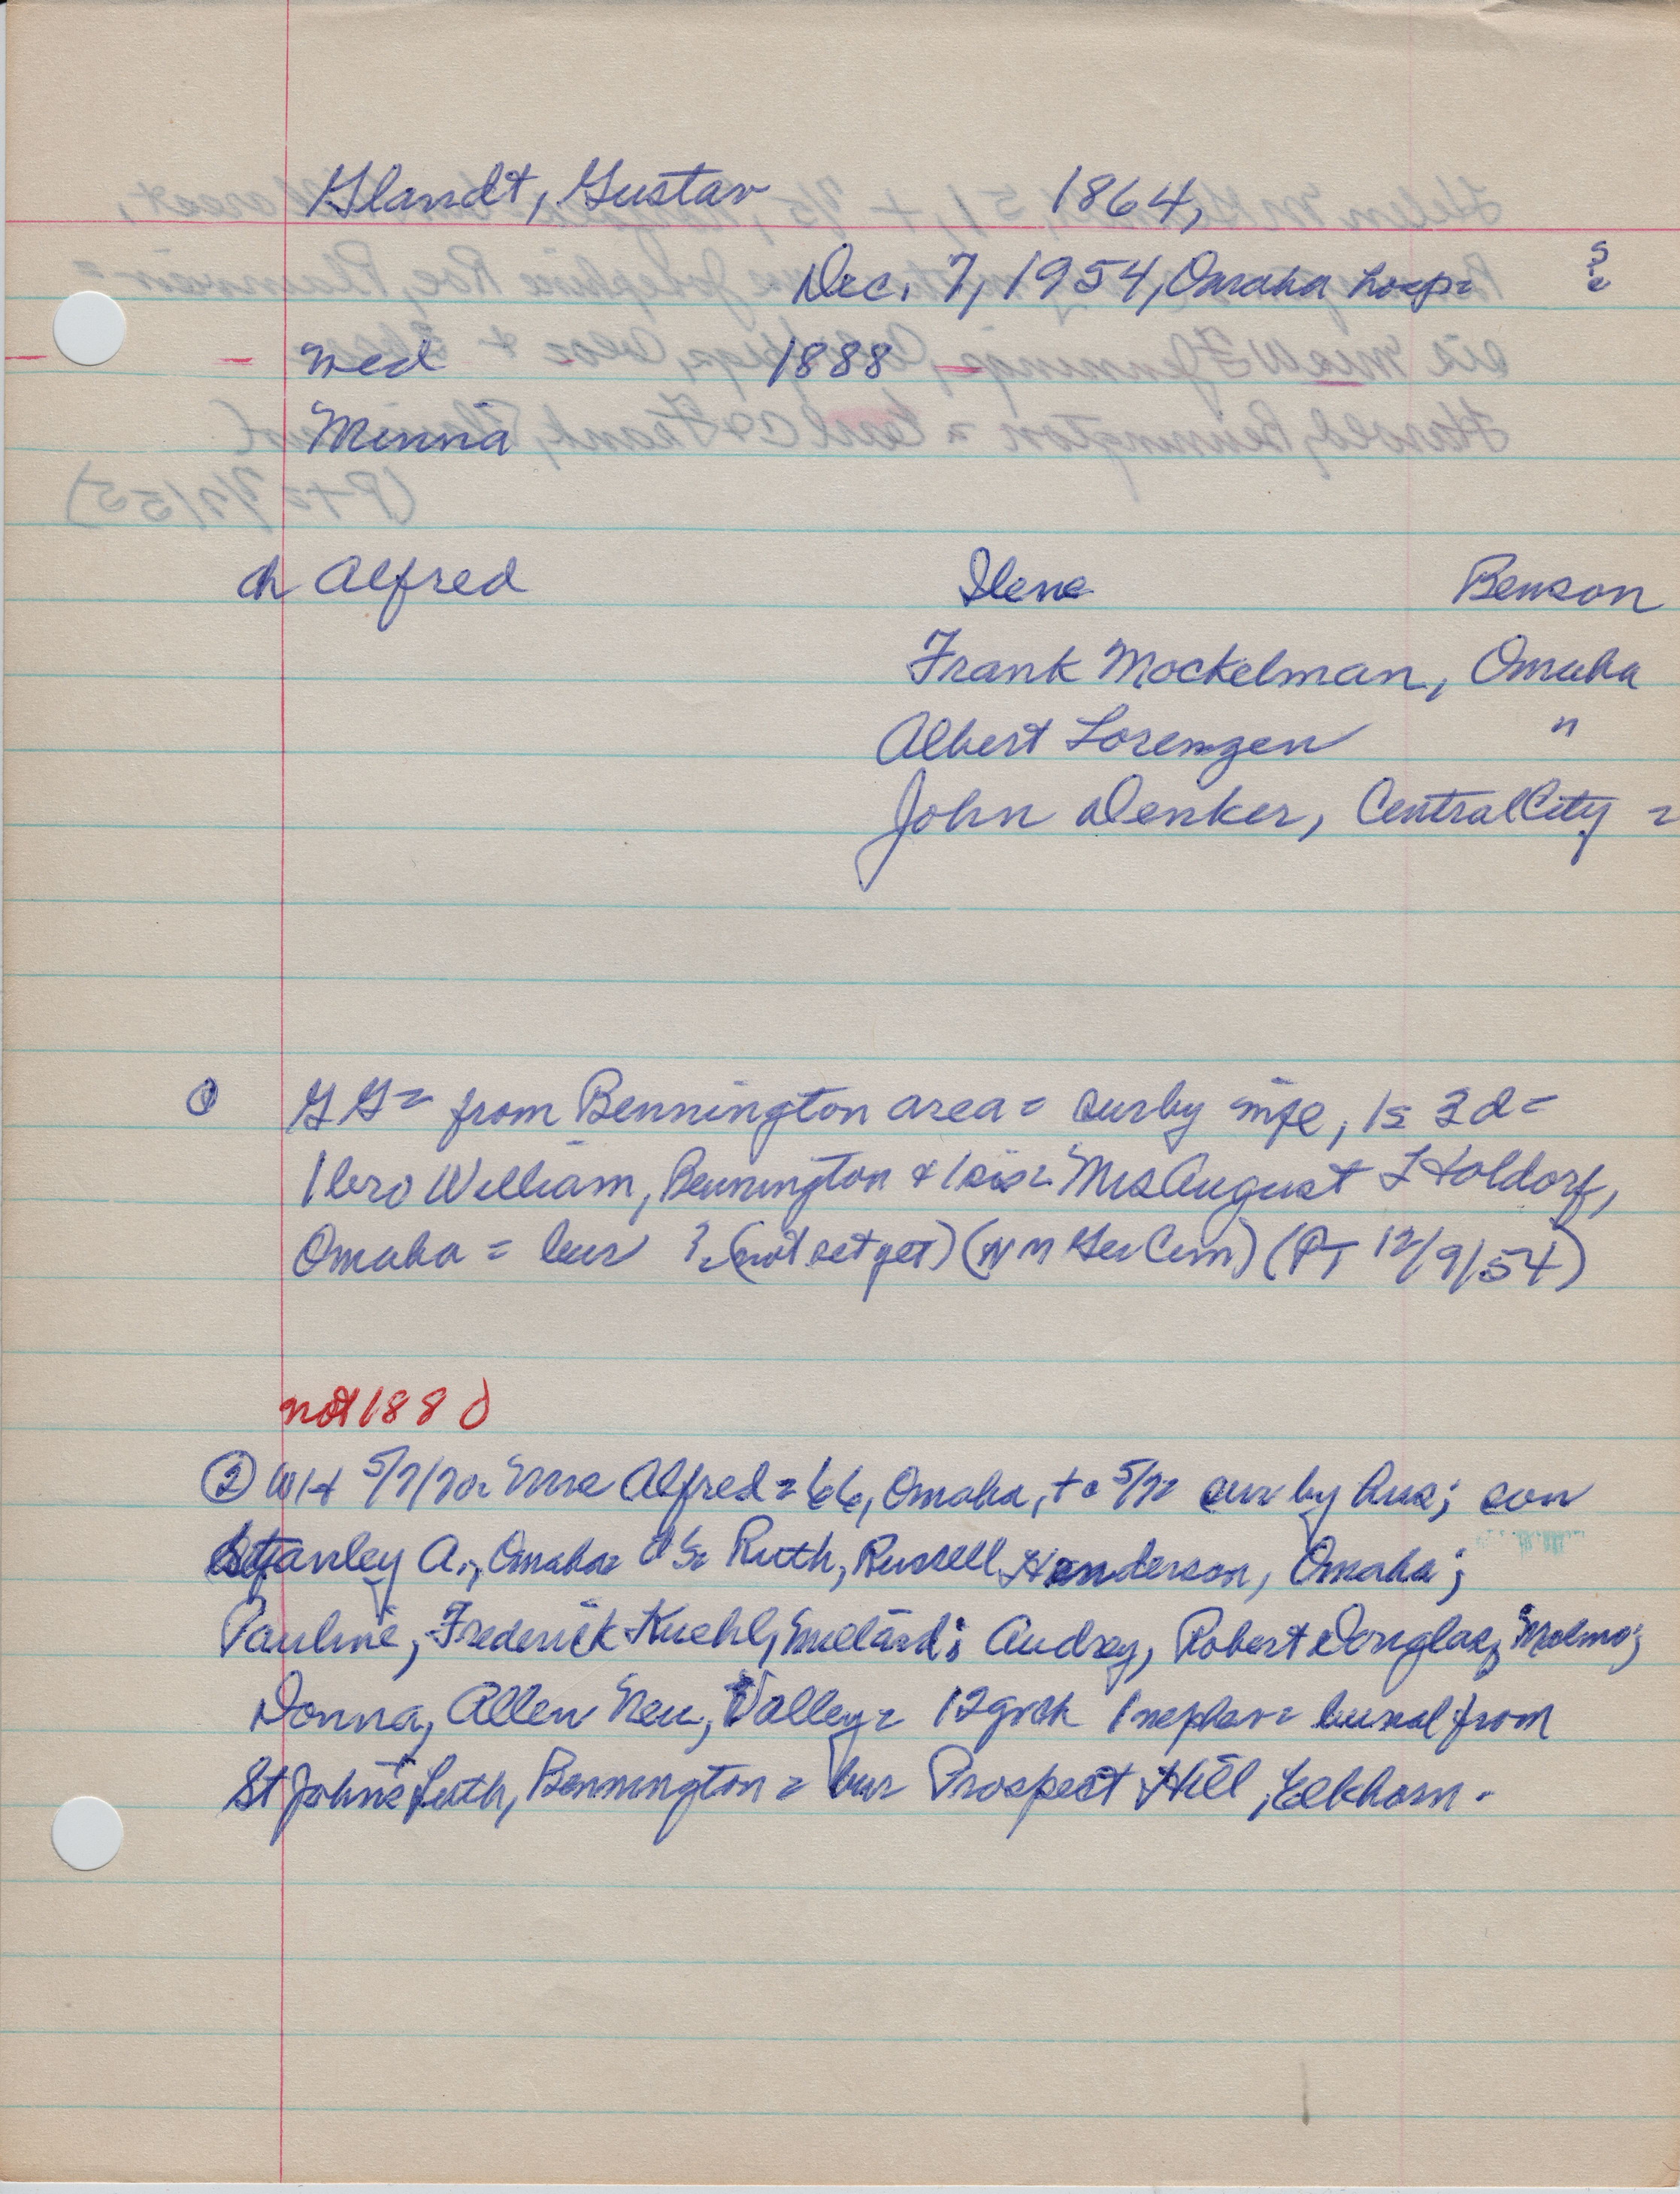 Glandt, Gustav 1864,
Dec. 7, 1954, Omaha hosp=
wed 1888
Minna
ch Alfred Ilene Benson
Frank Mockelman, Omaha
Albert Lorenzen "
John Denker, Central City =
① GG= from Bennington area = surby wife, 1s 3d=
1 bro William, Bennington & 1 sis= Mrs August F Holdorf,
Omaha = bur ? (not set yet) (N M Ger Cem) (PT 12/9/54)
not 188
② WH 5/7/70= Mrs Alfred = 66, Omaha, + 5/7= sur by hus; son
Stanley A., Omaha= d's= Ruth, Russell Henderson, Omaha;
Pauline, Frederick Kuehl, Millard; Audrey, Robert Douglas, Malmo;
Donna, Allen Neu, Valley= 12 grch 1 nephew= burial from
St John's Luth, Bennington = bur Prospect Hill, Elkhorn.